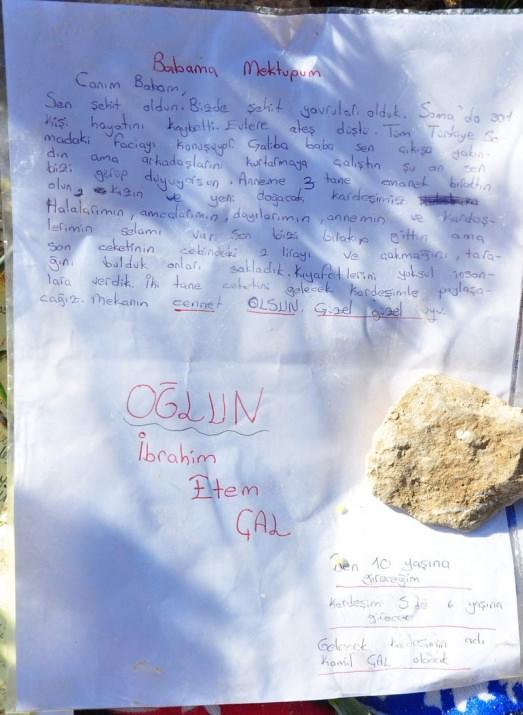 Babama Mektupum
Canım Babam,
Sen şehit oldun. Bizde şehit yavruları olduk. Soma'da 301
kişi hayatını kaybetti. Evlere ateş düştü. Tüm Türkiye So
madaki faciayı konuşuyor Galiba baba sen çıkışa yakın
dın ama arkadaşlarını kurtarmaya çalıştın şu an sen
bizi görüp duyuyorsun. Anneme 3 tane emanet bıraktın
oğlun, kızın ve yeni doğacak kardeşimiz
Halalarımın, amcalarımın, dayılarımın, annemin ve kardeş-
lerimin selamı var. Sen bizi bırakıp gittin ama
son ceketinin cebindeki 2 lirayı ve çakmağını, tara-
ğını bulduk onları sakladık. Kıyafetlerini yoksul insan-
lara verdik. İki tane ceketini gelecek kardeşimle paylaşa-
cağız. Mekanın cennet OLSUN. Güzel güzel uyu.
OĞLUN
İbrahim
Etem
ÇAL
Ben 10 yaşına
gireceğim
Kardeşim 5 6 yaşına
girecek
Gelecek kardeşimin adı
Kamil ÇAL olacak